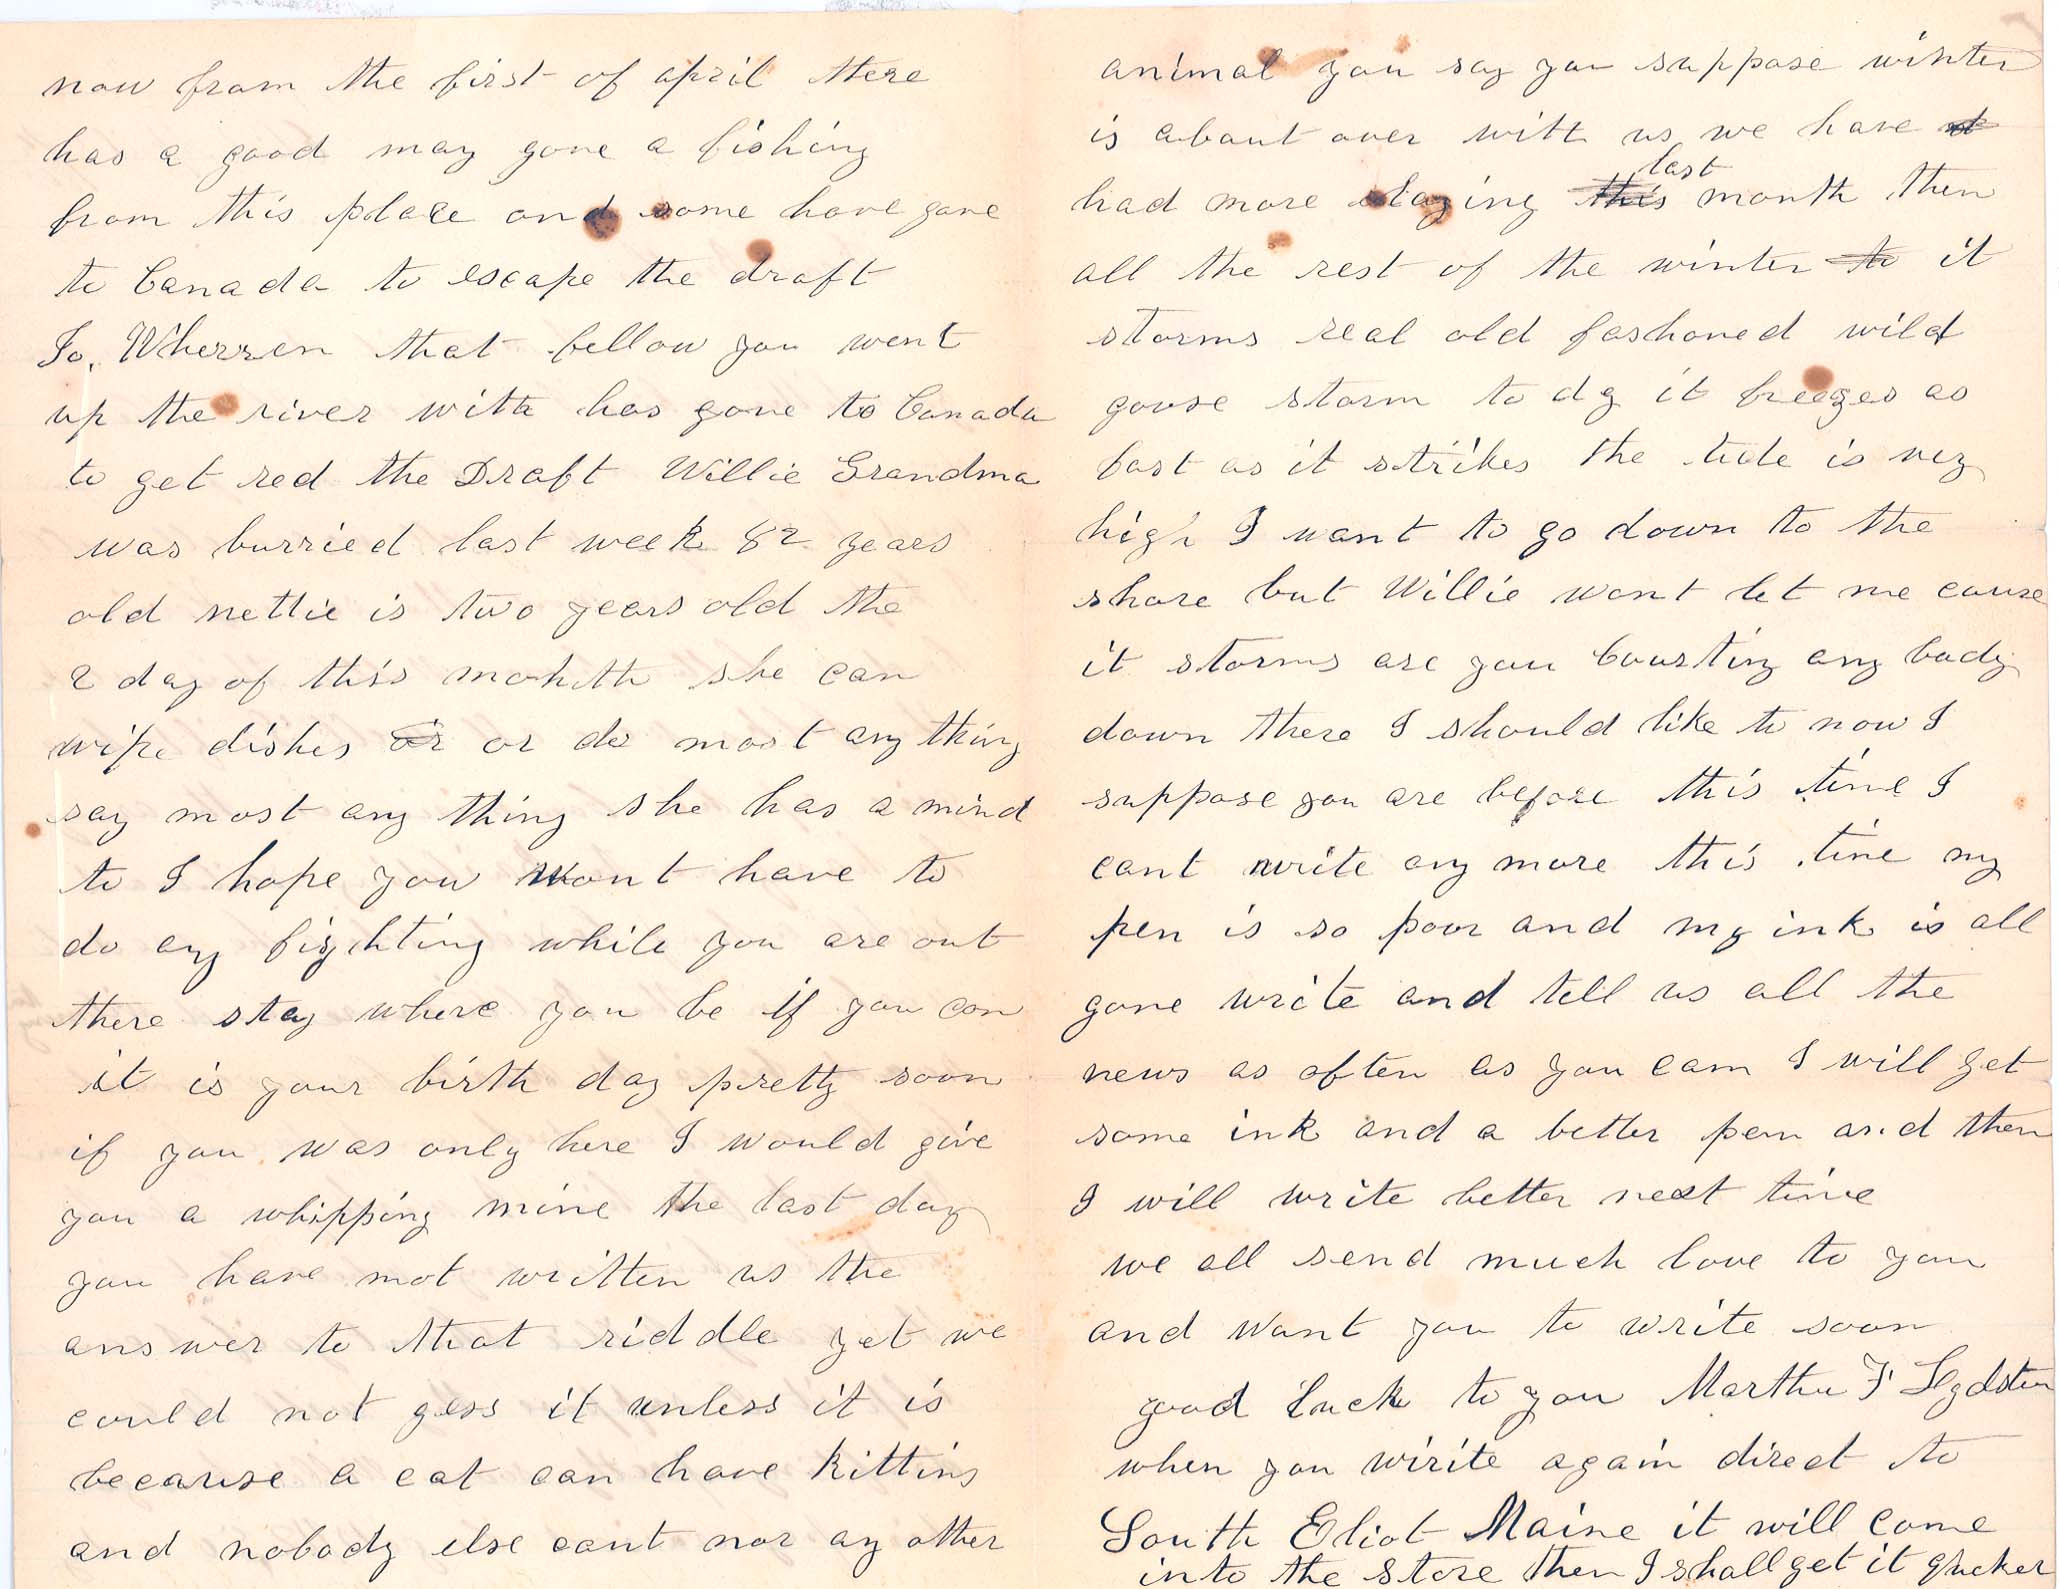 now from the first of april there
has a good may gone a fishing
from this place and some have gone
to Canada to escape the draft
Jo. Wherren that fellow you went
up the river with has gone to Canada
to get red the Draft Willie Grandma
was burried last week 82 years
old nettie is two years old the
2 day of this month she can
wipe dishes or or do most any thing
say most any thing she has a mind
to I hope you wont have to
do any fighting while you are out
there stay where you be if you can
it is your birth day pretty soon
if you was only here I would give
you a whipping mine the last day
you have not written us the
answer to that riddle yet we
could not gess it unless it is
because a cat can have kittins
and nobody else cant nor any other
animal you say you suppose winter
is about over with us we have
had more slaying this last month then
all the rest of the winter to it
storms real old fashoned wild
gouse storm to dy it freezes as
fast as it strikes the tide is very
high I want to go down to the
shore but Willie wont let me cause
it storms are you Courting any body
down there I should like to now I
suppose you are before this time I
cant write any more this time my
pen is so poor and my ink is all
gone write and tell us all the
news as often as you can I will get
some ink and a better pen and then
I will write better next time
we all send much love to you
and want you to write soon
good luck to you Martha F Lydston
when you wirite again direct to
South Eliot Maine it will come
into the store then I shall get it quicker